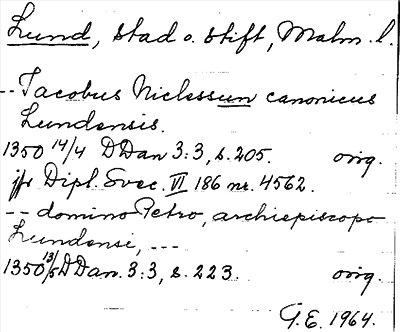 Lund, stad o. stift, Malm. l.
-- Jacobus Niclessun canonicus
Lundensis.
1350 14/4 DDan 3:3, s. 205. orig.
jfr Dipl. Svec. VI 186 nr. 4562.
-- domino Petro, archiepiscopo
Lundensi, ---
1350 13/5 DDan. 3:3, s. 223. orig.
G.E. 1964.